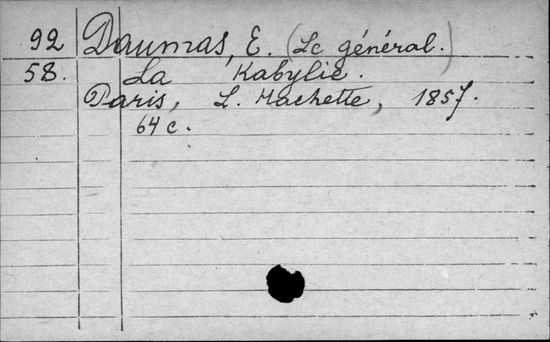 92 Daumas, E. (Le général.)
58. La Kabylie.
Paris, L. Hachette, 1857.
64 c.